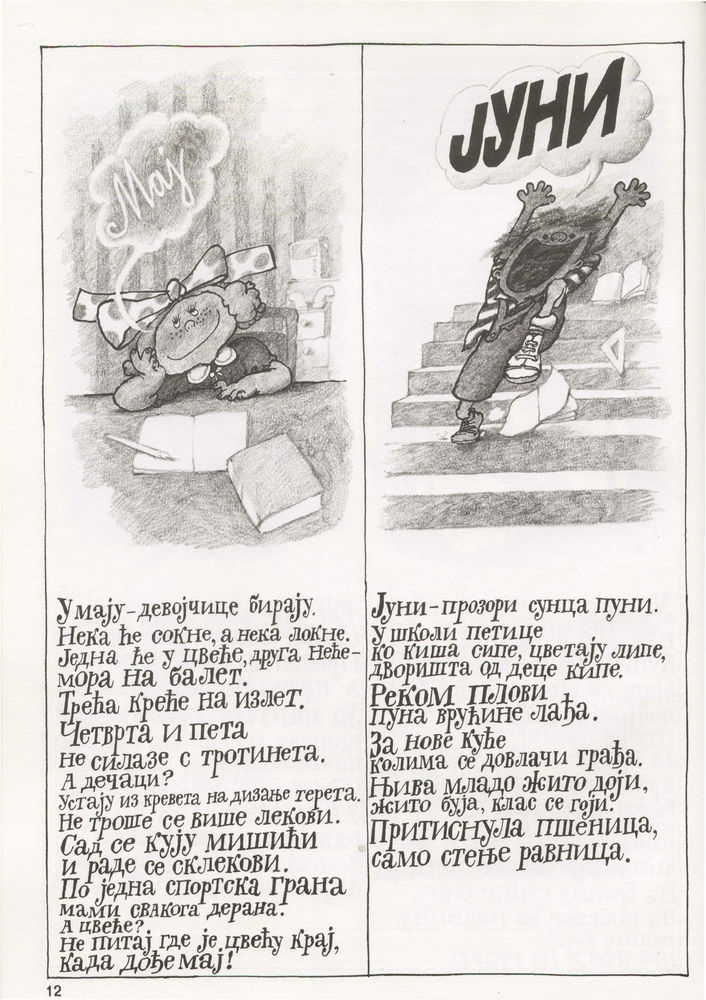 Мај
У мају-девојчице бирају.
Нека ће сокне, а нека локне.
Једна ће у цвеће, друга неће-
мора на балет.
Трећа креће на излет.
Четврта и пета
не силазе с тротинета.
А дечаци?
Устају из кревета на дизање терета.
Не троше се више лекови.
Сад се кују мишићи
и раде се склекови.
По једна спортска грана
мами свакога дерана.
А цвеће?
Не питај где је цвећу крај,
када дође мај!
12
ЈУНИ
Јуни-прозори сунца пуни.
У школи петице
ко киша сипе, цветају липе,
дворишта од деце кипе.
Реком плови
пуна врућине лађа.
За нове куће
колима се довлачи грађа.
Њива младо жито доји,
жито буја, клас се гоји.
Притиснула пшеница,
само стење равница.